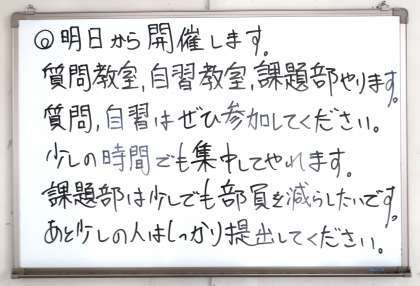 ◎明日から開催します。
質問教室,自習教室,課題部やります。
質問,自習はぜひ参加してください。
少しの時間でも集中してやれます。
課題部は少しでも部員を減らしたいです。
あと少しの人はしっかり提出してください。